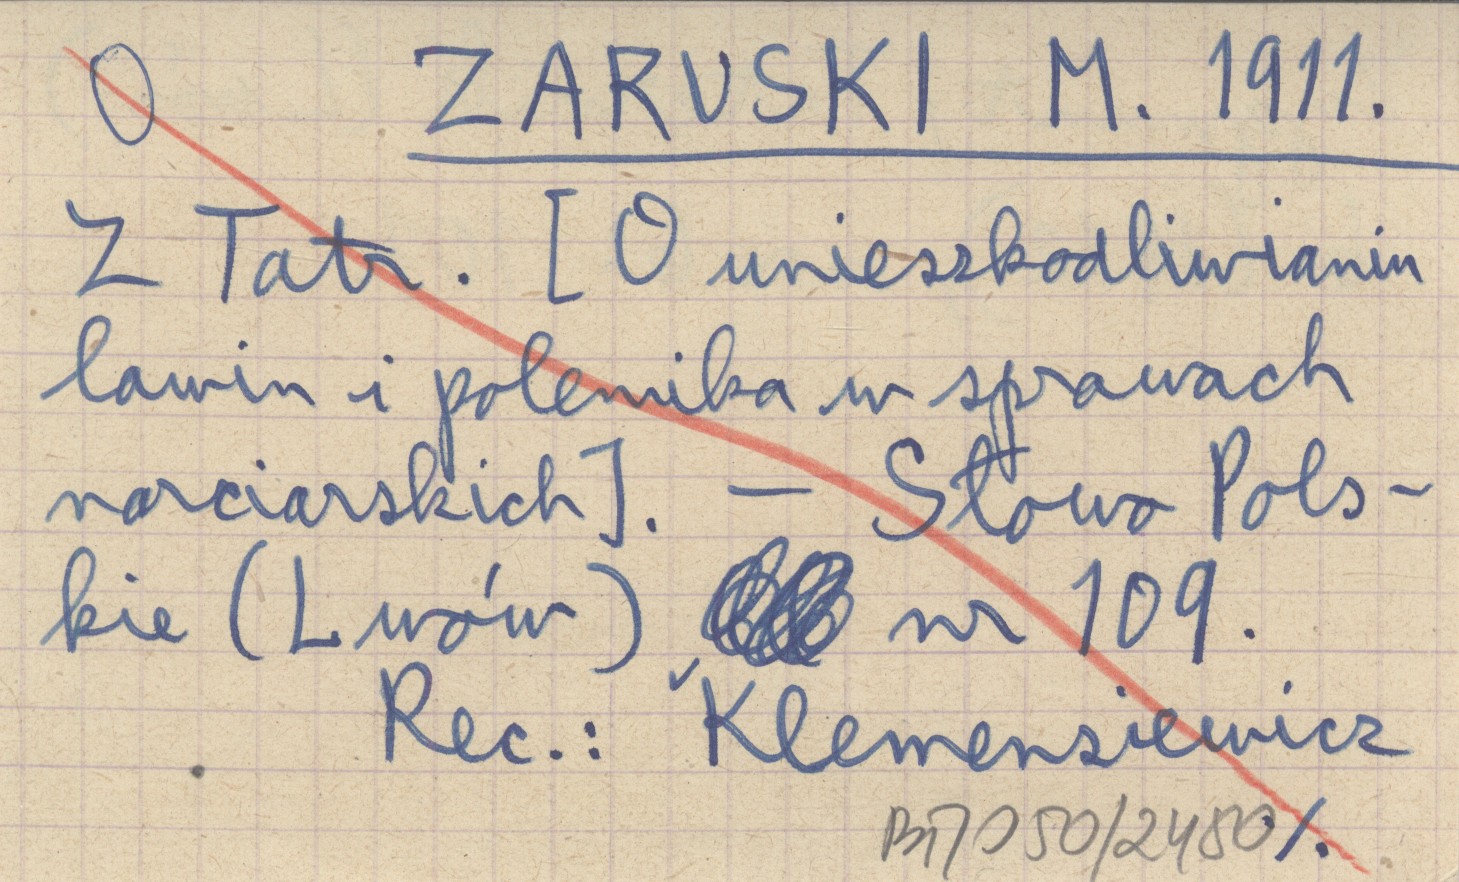 O ZARUSKI M. 1911.
Z Tatr. [O unieszkodliwianiu
lawin i polemika w sprawach
narciarskich]. — Słowo Pols-
kie (Lwów) nr 109.
Rec.: Klemensiewicz
/2480 /.